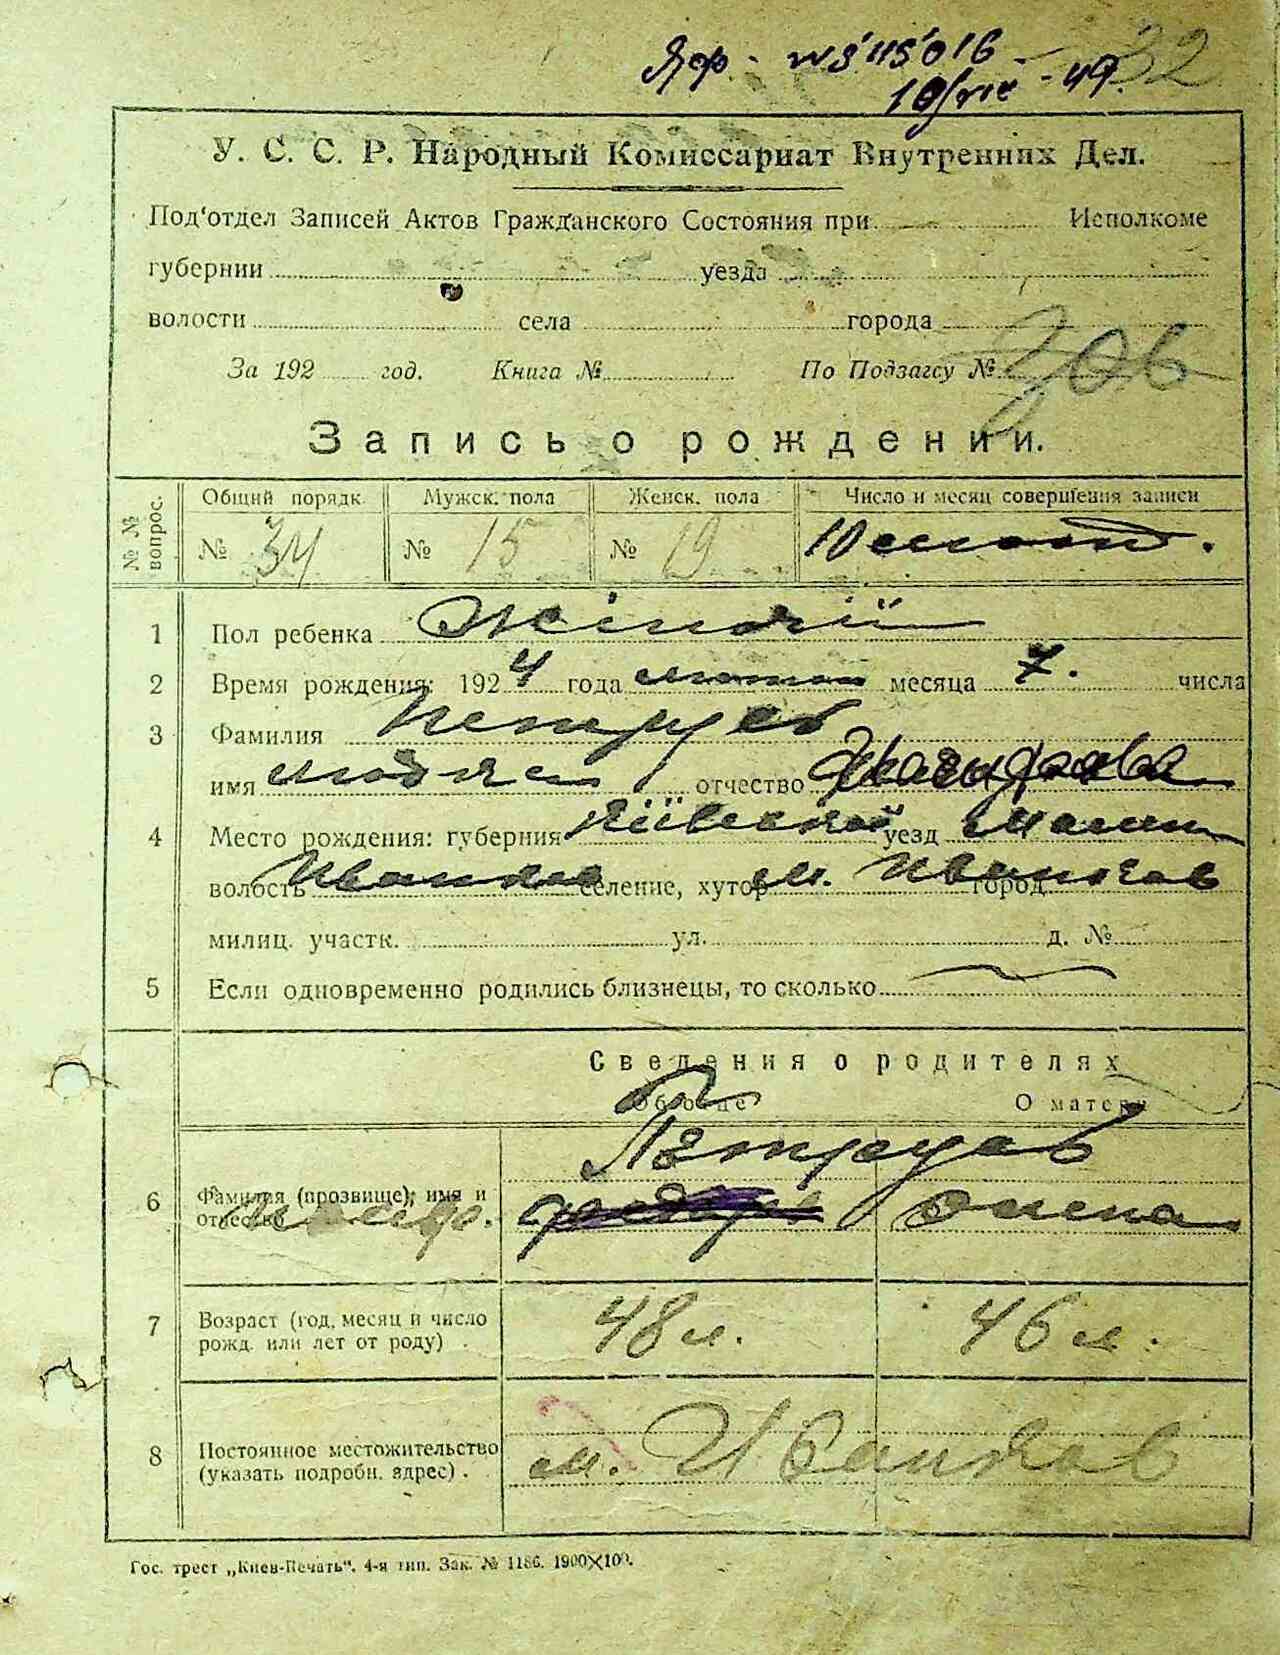 32
У. С. С. Р. Народный Комиссариат Внутренних Дел.
Под'отдел Записей Актов Гражданского Состояния при Исполкоме
губернии уезда
волости села города
За 192 год. Книга № По Подзагсу №
Запись о рождении.
№ № вопрос. Общий порядк. Мужск. пола Женск. пола Число и месяц совершения записи
№ 34 № 15 № 19 10
1 Пол ребенка Жіночий
2 Время рождения: 1924 года лютого месяца 7. числа
3 Фамилия Петруев
имя отчество
4 Место рождения: губерния Київська уезд Малин
волость Иванков селение, хутор м. Иванков город
милиц. участк. ул. д. №
5 Если одновременно родились близнецы, то сколько
Сведения о родителях
Об отце О матери
6 Фамилия (прозвище), имя и
отчество
7 Возраст (год, месяц и число
рожд. или лет от роду) . 48 л. 46 л.
8 Постоянное местожительство
(указать подробн. адрес) . м. Иванков
Гос. трест „Киев-Печать". 4-я тип. Зак. № 1186. 1900×100.